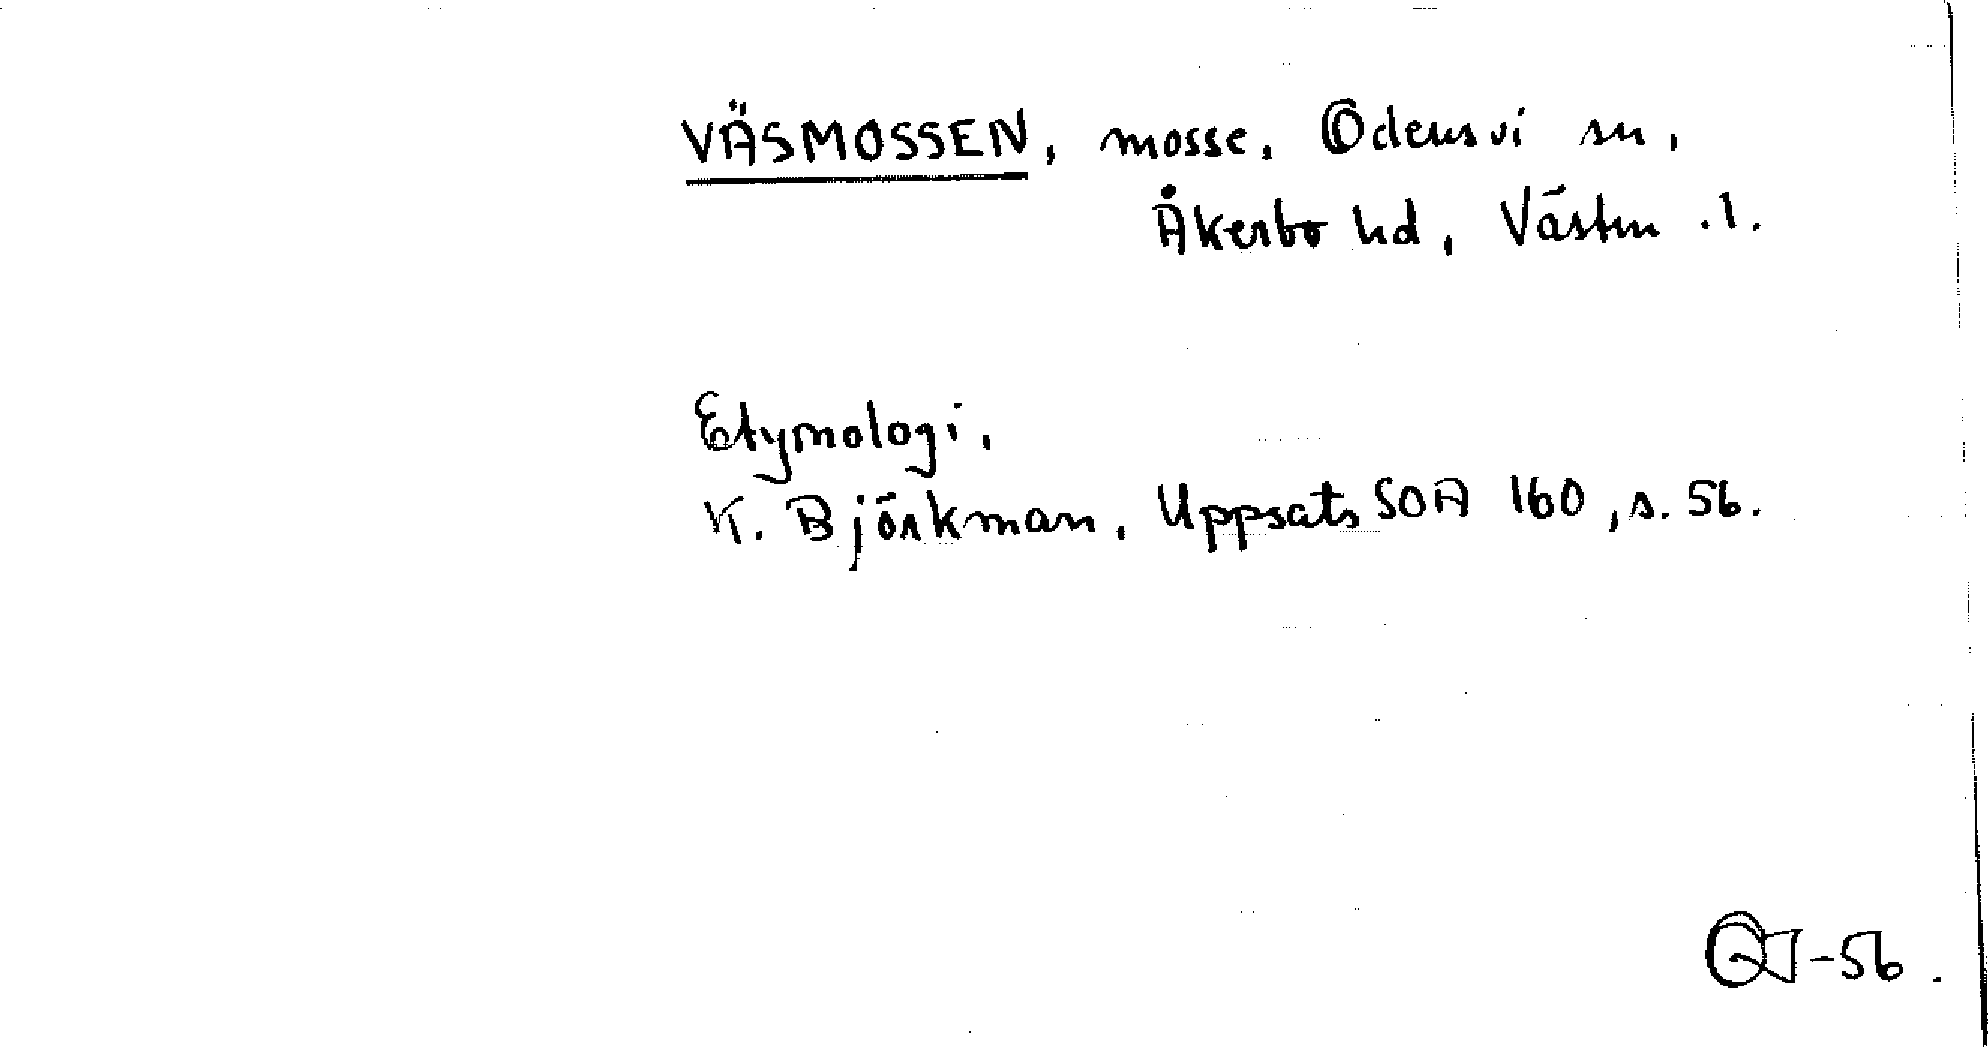 VÄSMOSSEN, mosse, Odensvi sn,
Åkerbo hd, Västm. l.
Etymologi.
K. Björkman, Uppsats SOA 160, s. 56.
-56.